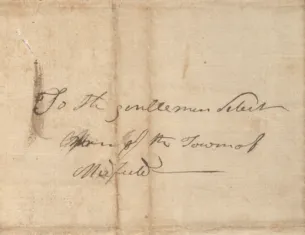 To the gentlemen Select
men of the Town of